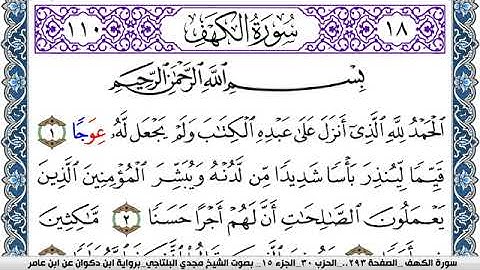 ١٨ سُورَةُ الْكَهْفِ ١١٠
بِسْمِ اللَّهِ الرَّحْمَٰنِ الرَّحِيمِ
الْحَمْدُ لِلَّهِ الَّذِي أَنزَلَ عَلَىٰ عَبْدِهِ الْكِتَابَ وَلَمْ يَجْعَل لَّهُ عِوَجًا ١
قَيِّمًا لِّيُنذِرَ بَأْسًا شَدِيدًا مِّن لَّدُنْهُ وَيُبَشِّرَ الْمُؤْمِنِينَ الَّذِينَ
يَعْمَلُونَ الصَّالِحَاتِ أَنَّ لَهُمْ أَجْرًا حَسَنًا ٢ مَّاكِثِينَ
سورة الكهف _ الصفحة ٢٩٣ .. الحزب ٣٠ _ الجزء ١٥ _ بصوت الشيخ مجدي البلتاجي _ برواية ابن ذكوان عن ابن عامر